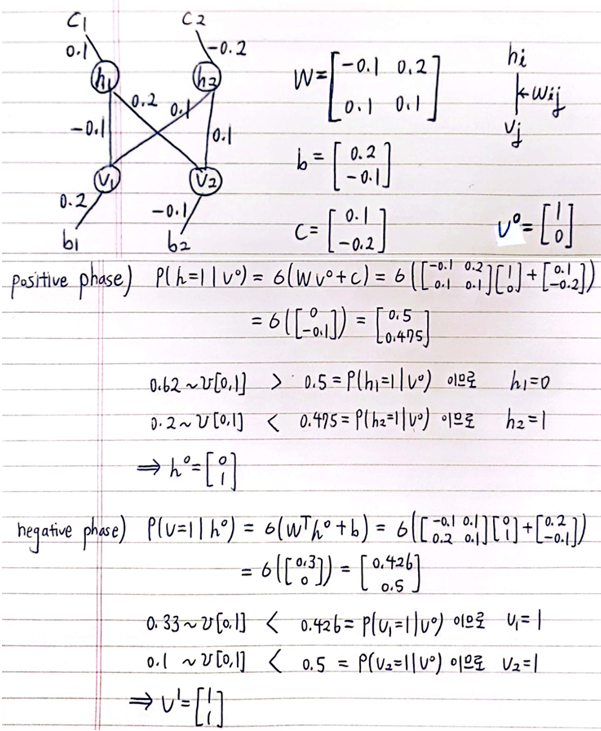 C₁ C₂
0.1 -0.2
h₁ h₂
0.2 0.1
-0.1 0.1
V₁ V₂
0.2 -0.1
b₁ b₂
W = [-0.1 0.2
0.1 0.1]
b = [0.2
-0.1]
C = [0.1
-0.2]
hi
← wij
vj
v⁰ = [1
0]
positive phase) P(h=1|v⁰) = б(Wv⁰+c) = б([-0.1 0.2; 0.1 0.1][1; 0]+[0.1; -0.2])
= б([0; -0.1]) = [0.5; 0.475]
0.62~U[0,1] > 0.5=P(h₁=1|v⁰) 이므로 h₁=0
0.2~U[0,1] < 0.475=P(h₂=1|v⁰) 이므로 h₂=1
⇒ h⁰=[0; 1]
negative phase) P(v=1|h⁰) = б(Wᵀh⁰+b) = б([-0.1 0.1; 0.2 0.1][0; 1]+[0.2; -0.1])
= б([0.3; 0]) = [0.426; 0.5]
0.33~U[0,1] < 0.426=P(v₁=1|v⁰) 이므로 v₁=1
0.1 ~U[0,1] < 0.5 = P(v₂=1|v⁰) 이므로 v₂=1
⇒ v¹=[1; 1]